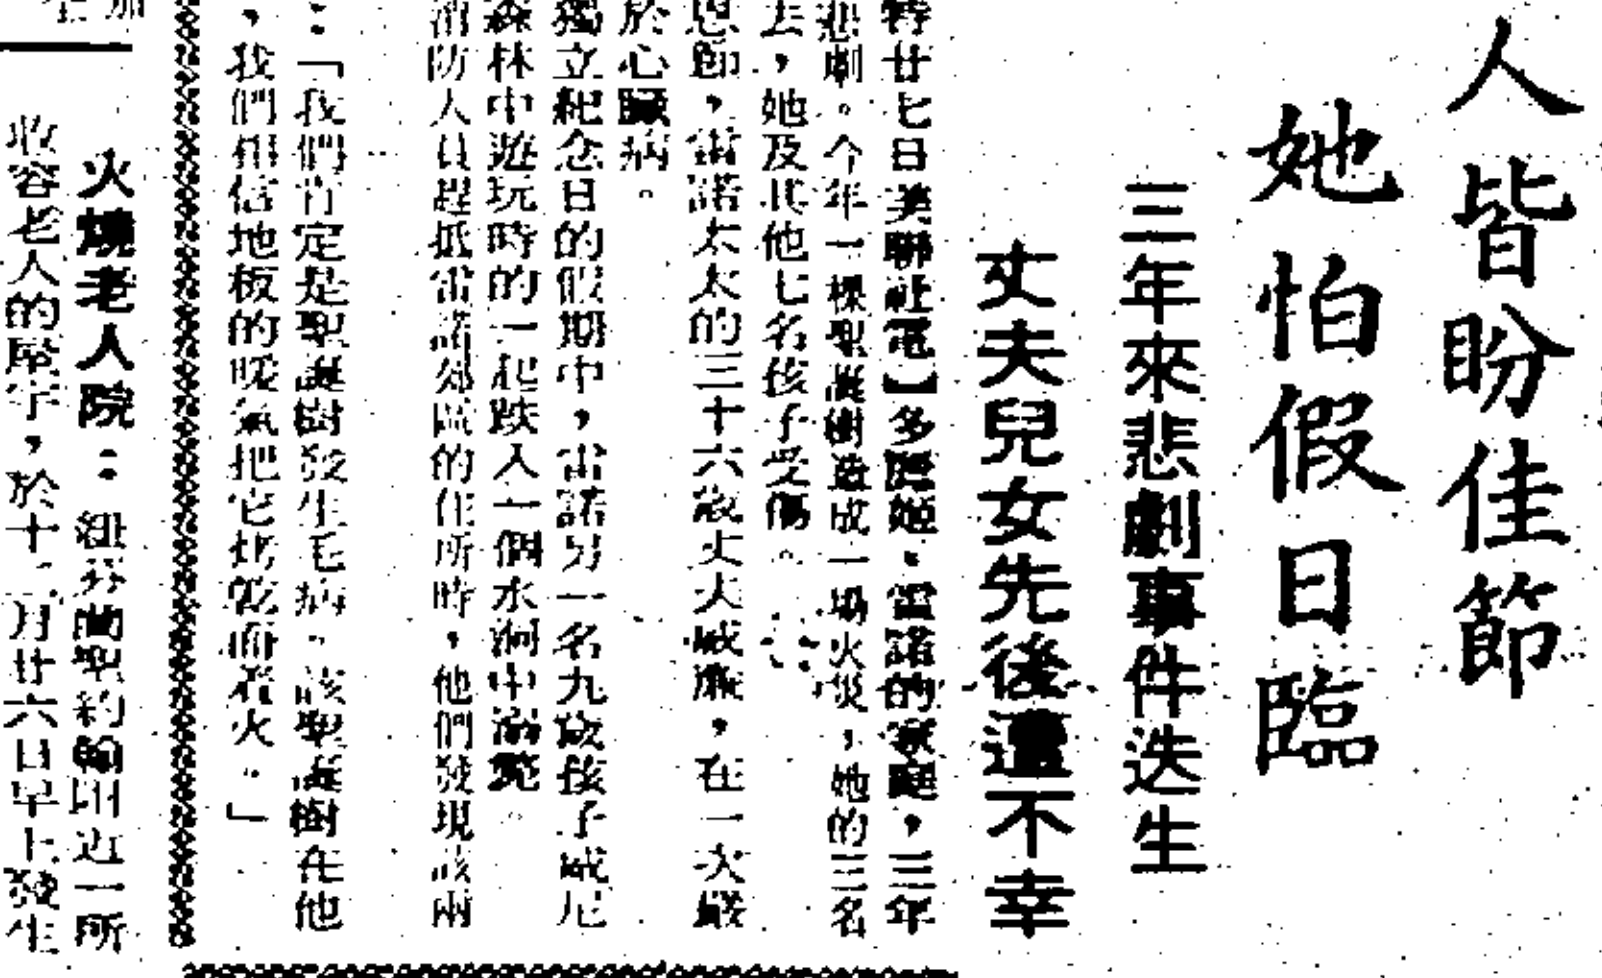 人皆盼佳節
她怕假日臨
三年來悲劇事件迭生
丈夫兒女先後遭不幸
特廿七日美聯社電】多麗姬．雷諾的家庭，三年
悲劇。今年一棵聖誕樹造成一場火災，她的三名
去，她及其他七名孩子受傷。
恩節，雷諾太太的三十六歲丈夫威廉，在一次嚴
於心臟病。
獨立紀念日的假期中，雷諾另一名九歲孩子威尼
森林中遊玩時的一起跌入一個水洞中溺斃。
消防人員趕抵雷諾郊區的住所時，他們發現該兩
：「我們肯定是聖誕樹發生毛病。該聖誕樹在他
，我們相信地板的暖氣把它烤乾而着火。」
加
火燒老人院：紐芬蘭聖約翰附近一所
收容老人的屋宇，於十二月廿六日早上發生